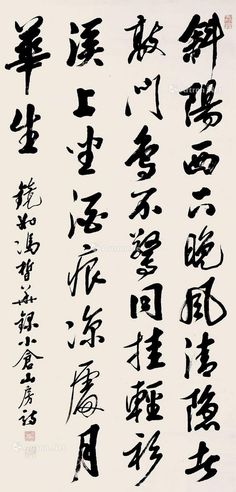 斜陽西下晚風清隱者
敲門鳥不驚同挂輕衫
溪上坐酒痕涼處月
華生
鏡如馮華錄小倉山房詩